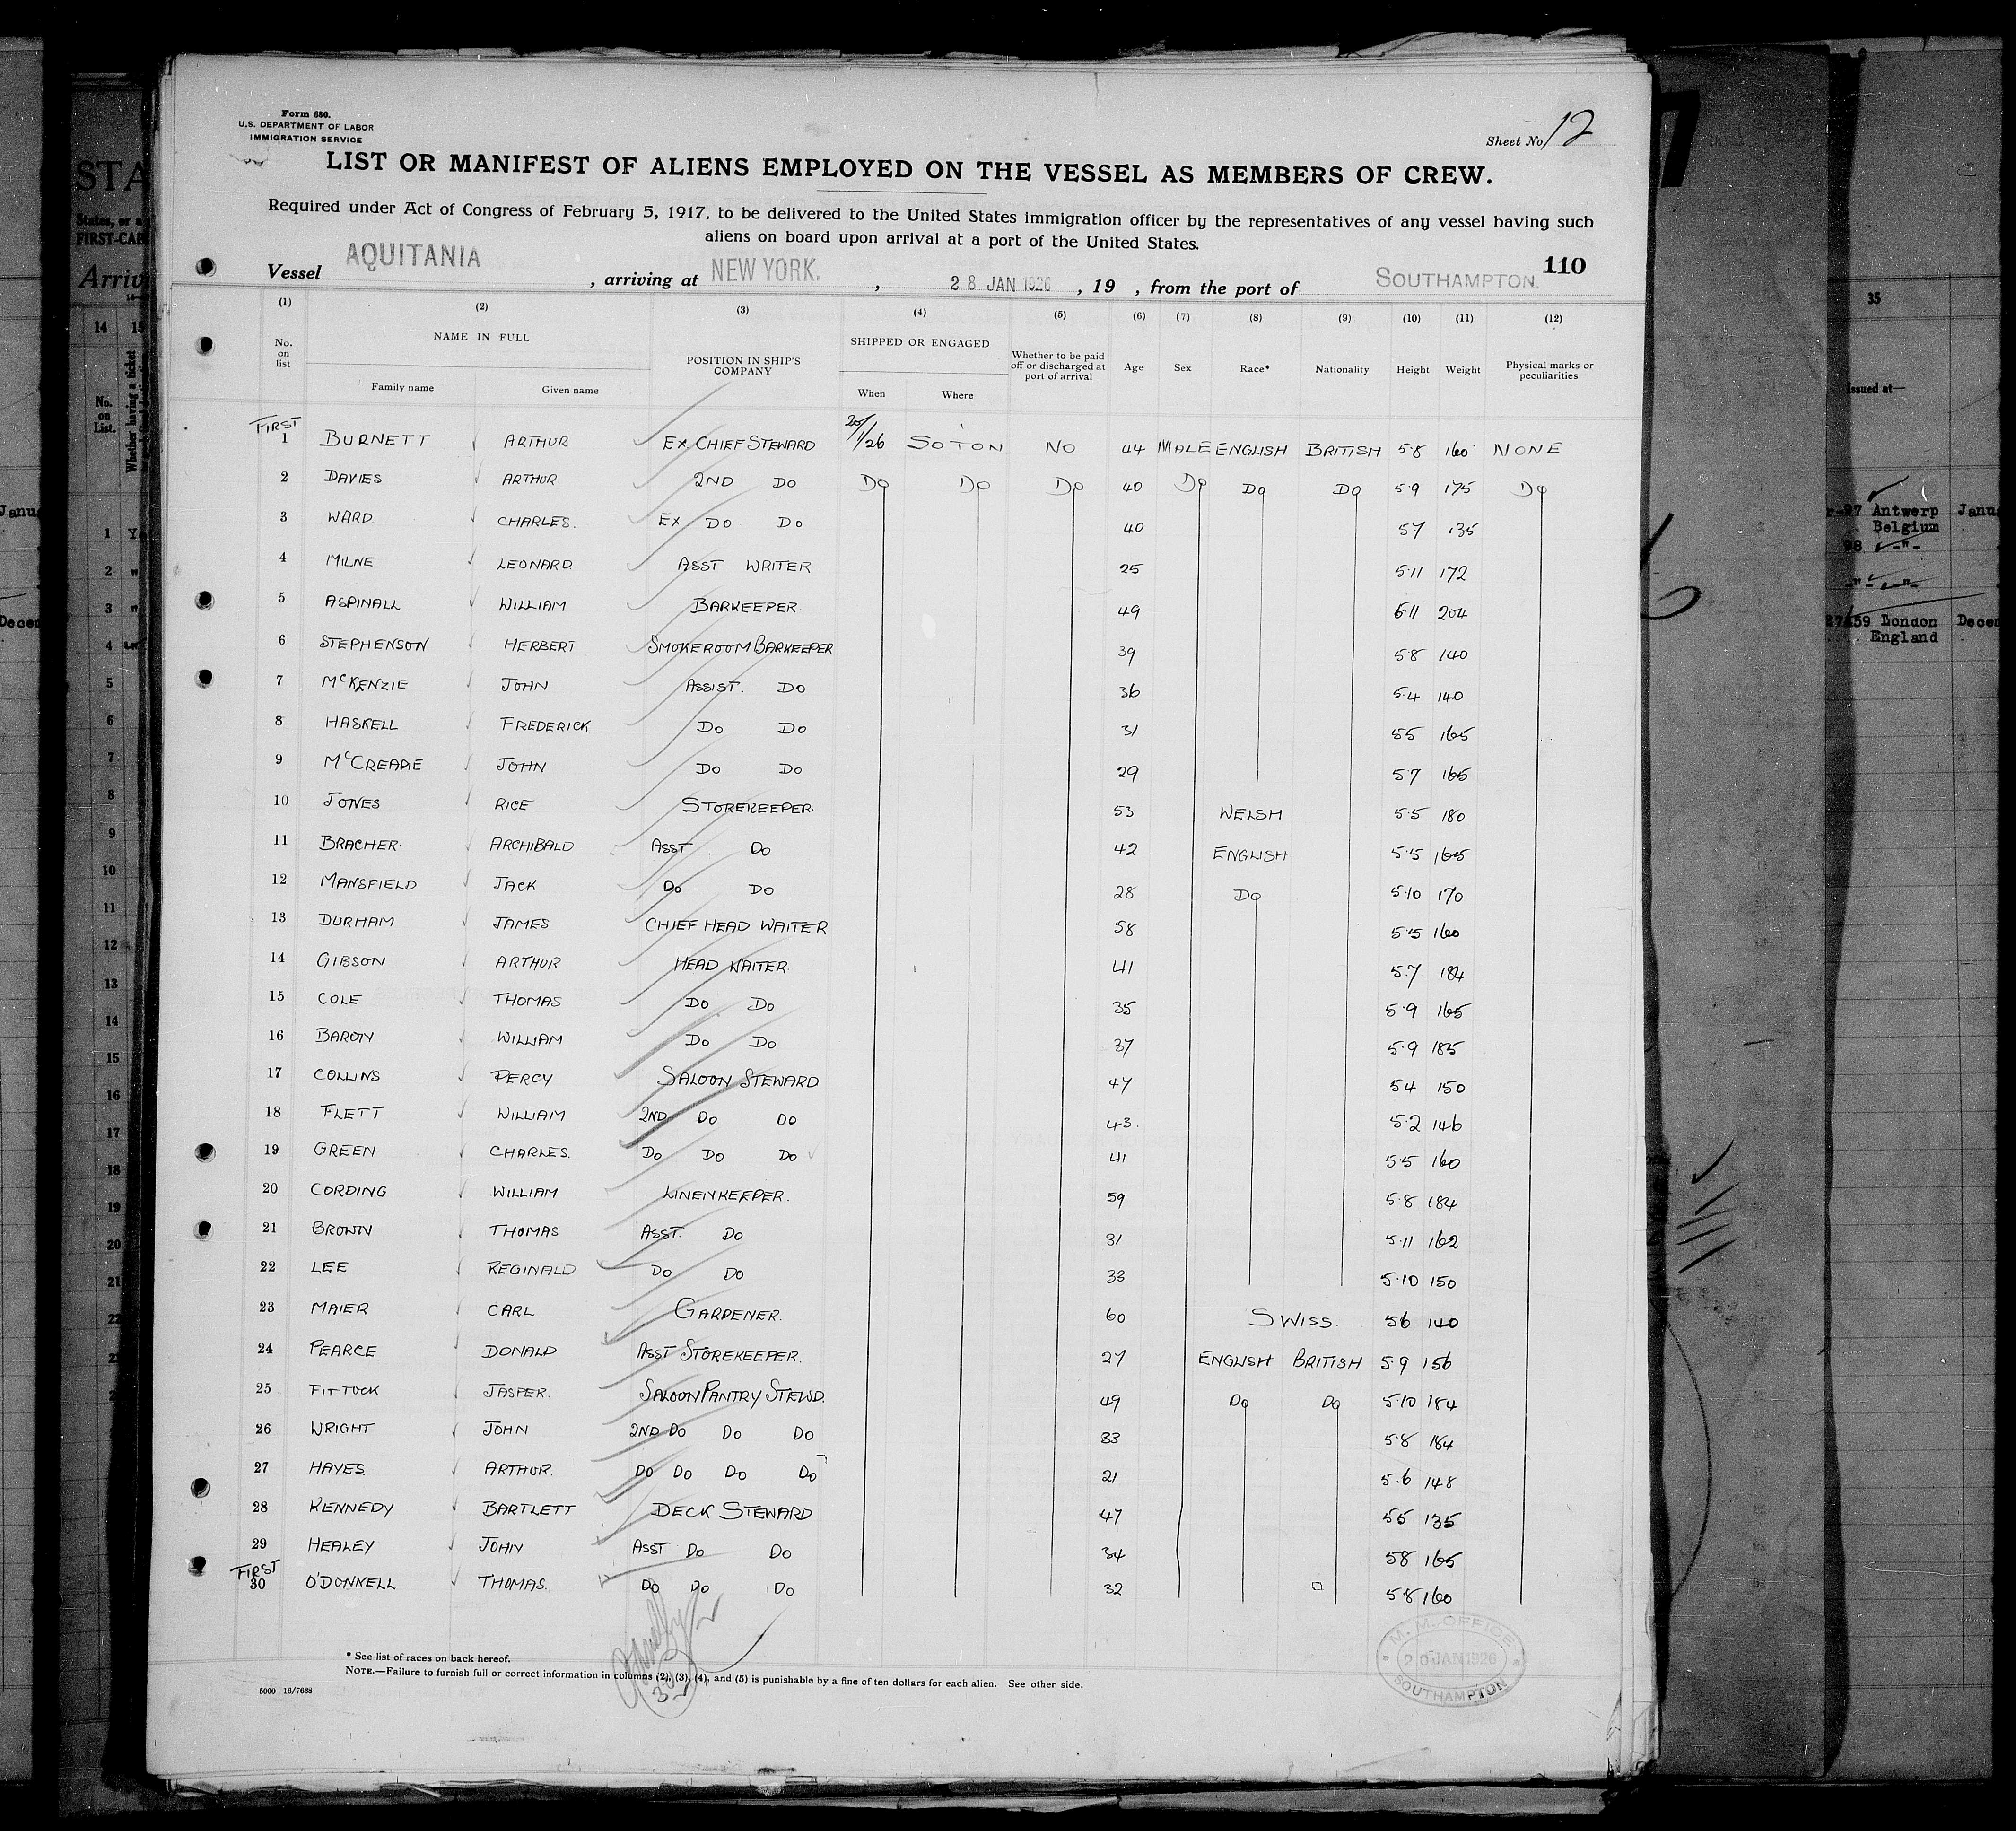 Form 680.
U.S. DEPARTMENT OF LABOR
IMMIGRATION SERVICE
Sheet No. 12
LIST OR MANIFEST OF ALIENS EMPLOYED ON THE VESSEL AS MEMBERS OF CREW.
Required under Act of Congress of February 5, 1917, to be delivered to the United States immigration officer by the representatives of any vessel having such
aliens on board upon arrival at a port of the United States.
110
Vessel AQUITANIA , arriving at NEW YORK. , 28 JAN 1926 , 19 , from the port of SOUTHAMPTON.
(1) (2) (3) (4) (5) (6) (7) (8) (9) (10) (11) (12)
No. on list NAME IN FULL Family name Given name POSITION IN SHIP'S COMPANY SHIPPED OR ENGAGED When Where Whether to be paid off or discharged at port of arrival Age Sex Race* Nationality Height Weight Physical marks or peculiarities
FIRST
1 BURNETT ARTHUR EX CHIEF STEWARD 20/1/26 SOTON NO 44 MALE ENGLISH BRITISH 5·8 160 NONE
2 DAVIES ARTHUR 2ND DO DO DO DO 40 DO DO DO 5·9 175 DO
3 WARD. CHARLES. EX DO DO 40 57 135
4 MILNE LEONARD ASST WRITER 25 5·11 172
5 ASPINALL WILLIAM BARKEEPER. 49 6·11 204
6 STEPHENSON HERBERT SMOKEROOM BARKEEPER 39 58 140
7 McKENZIE JOHN ASSIST. DO 36 5·4 140
8 HASKELL FREDERICK DO DO 31 55 165
9 McCREADIE JOHN DO DO 29 57 165
10 JONES RICE STOREKEEPER. 53 WELSH 5·5 180
11 BRACHER. ARCHIBALD ASST DO 42 ENGLISH 5·5 165
12 MANSFIELD JACK DO DO 28 DO 5·10 170
13 DURHAM JAMES CHIEF HEAD WAITER 58 5·5 160
14 GIBSON ARTHUR HEAD WAITER. 41 5·7 184
15 COLE THOMAS DO DO 35 5·9 165
16 BARON WILLIAM DO DO 37 5·9 185
17 COLLINS PERCY SALOON STEWARD 47 54 150
18 FLETT WILLIAM 2ND DO DO 43. 5·2 146
19 GREEN CHARLES. DO DO DO 41 5·5 160
20 CORDING WILLIAM LINENKEEPER. 59 5·8 184
21 BROWN THOMAS ASST. DO 31 5·11 162
22 LEE REGINALD DO DO 33 5·10 150
23 MAIER CARL GARDENER. 60 SWISS. 56 140
24 PEARCE DONALD ASST STOREKEEPER. 27 ENGLISH BRITISH 5·9 156
25 FITTOCK JASPER. SALOON PANTRY STEWD. 49 DO DO 5·10 184
26 WRIGHT JOHN 2ND DO DO DO 33 5·8 184
27 HAYES. ARTHUR. DO DO DO DO 21 5·6 148
28 KENNEDY BARTLETT DECK STEWARD 47 55 135
29 HEALEY JOHN ASST DO DO 34 58 165
FIRST
30 O'DONNELL THOMAS. DO DO DO 32 5·8 160
* See list of races on back hereof.
NOTE.—Failure to furnish full or correct information in columns (2), (3), (4), and (5) is punishable by a fine of ten dollars for each alien. See other side.
5000 16/7638
M. M. OFFICE
20 JAN 1926
SOUTHAMPTON
STA
States, or a
FIRST-CAB
Arriv
14 15
No. on List.
Whether having a ticket
35
issued at—
Antwerp
Belgium
London
England